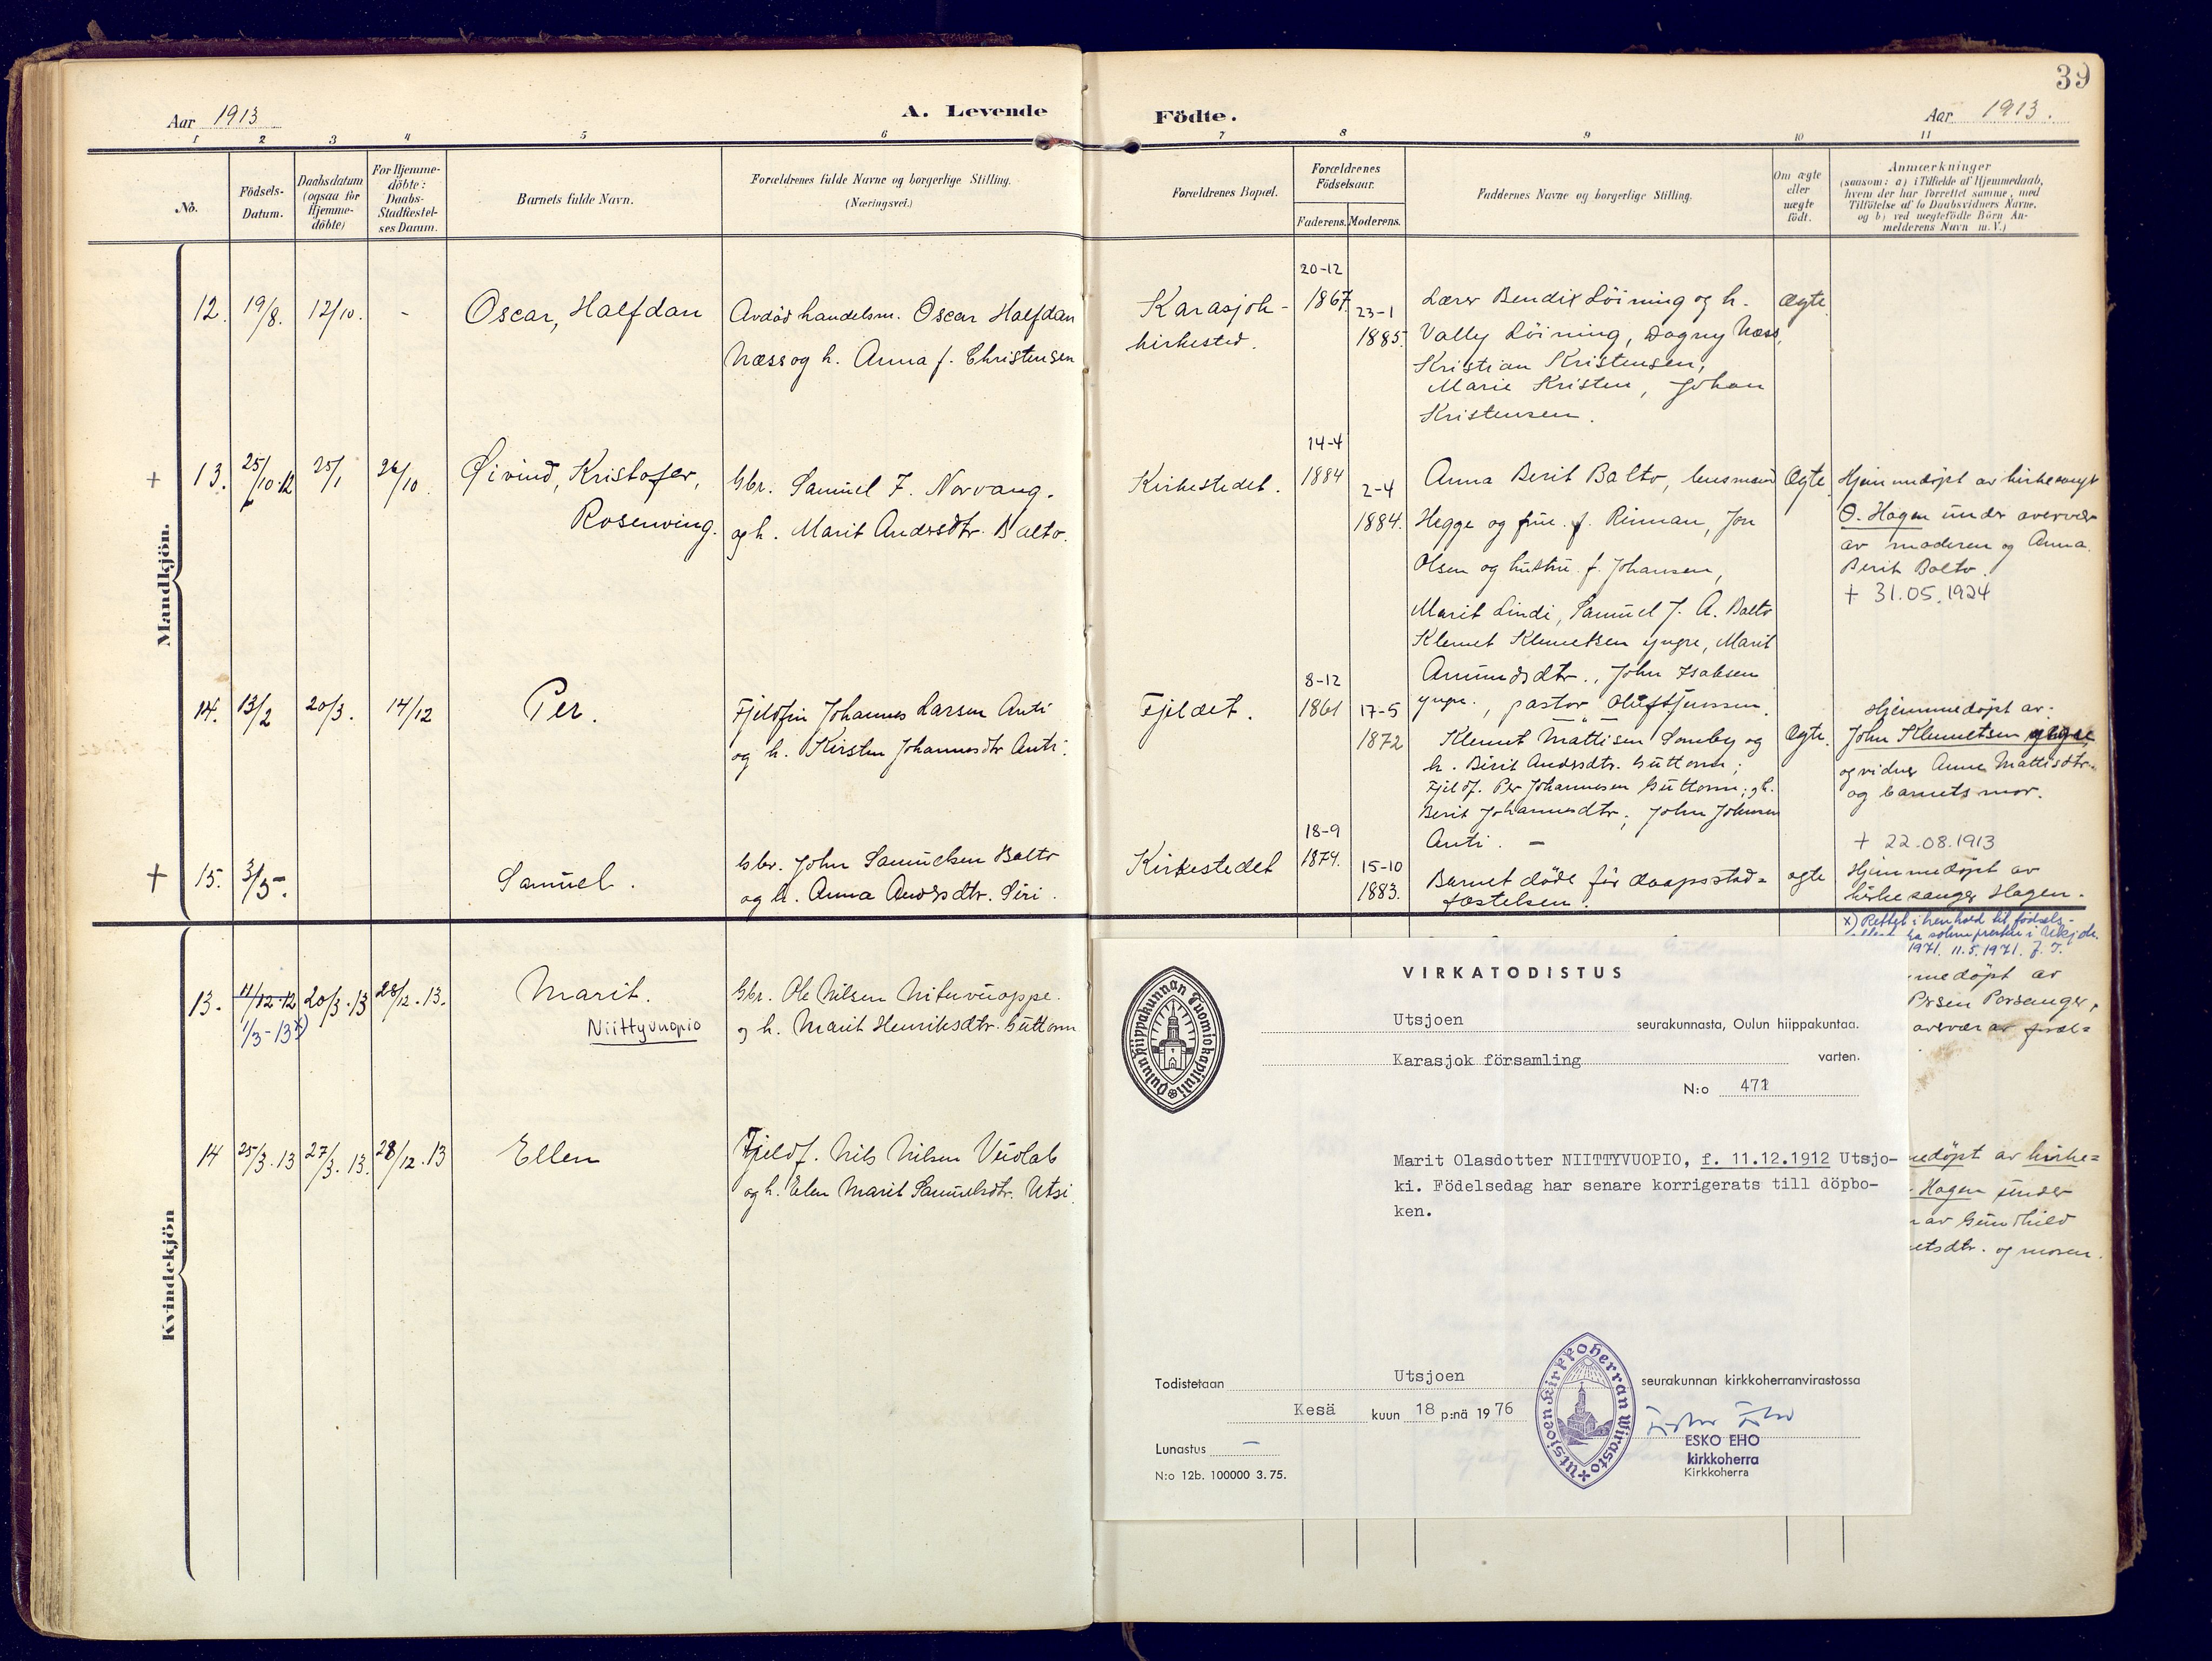 39
Aar 1913
A. Levende
Födte.
Aar 1913.
1 2 3 4 5 6 7 8 9 10 11
No.
Födsels-
Datum.
Daabsdatum
(ogsaa for
Hjemme-
döbte)
For Hjemme-
döbte:
Daabs-
Stadfæstel-
ses Datum.
Barnets fulde Navn.
Forældrenes fulde Navne og borgerlige Stilling.
(Næringsvei.)
Forældrenes Bopæl.
Forældrenes
Födselsaar.
Faderens. Moderens.
Faddernes Navne og borgerlige Stilling.
Om ægte
eller
uægte
födt.
Anmærkninger
(saasom: a) i Tilfælde af Hjemmedaab,
hvem der har forrettet samme, med
Tilföielse af to Daabsvidners Navne,
og b) ved uægtefödte Börn An-
melderens Navn m. V.)
Mandkjön.
12. 19/8. 12/10. -
Oscar, Halfdan
Avdød handelsm. Oscar Halfdan
Næss og h. Anna f. Christensen
Karasjok-
kirkested.
20-12
1867
23-1
1885.
Lærer Bendix Löining og h.
Vally Löining, Dagny Næss,
Kristian Kristensen,
Marie Kristen, Johan
Kristensen.
Ægte
+ 13. 25/10.12 25/1 26/10.
Øivind, Kristofer,
Rosenving.
Gbr. Samuel F. Norvang.
og h. Marit Andersdtr. Balto.
Kirkestedet.
14-4
1884
2-4
1884.
Anna Berit Balto, lensmand
Hegge og frue f. Rinman, Jon
Olsen og hustru f. Johansen,
Marit Lindi, Samuel J. A. Balto
Klemet Klemetsen yngre, Marit
Amundsdtr., John Isaksen
yngre., pastor Oluf Tjenssen.
Ægte.
Hjemmedøpt av kirkesangr
O. Hagen under overvær
av moderen og Anna
Berit Balto.
+ 31.05.1924
14. 13/2 20/3. 14/12
Per.
Fjeldfin Johannes Larsen Anti
og h. Kirsten Johannesdtr Anti.
Fjeldet.
8-12
1861
17-5
1872
Klemet Mattisen Somby og
h. Berit Andersdtr. Guttorm;
Fjeldf. Per Johannesen Guttorm; og h.
Berit Johannesdtr; John Johnsen
Anti. -
Ægte.
Hjemmedøpt av:
John Klemetsen yngre
og vidner Anne Mattisdtr.
og barnets mor.
+ 15. 3/5-.
Samuel.
Gbr. John Samuelsen Balto
og h. Anna Andersdtr. Siri.
Kirkestedet
18-9
1874.
15-10
1883.
Barnet døde før daapsstad=
fæstelsen.
ægte
+ 22.08.1913
Hjemmedøpt av
kirkesanger Hagen.
Kvindekjön
13. 11/12-12 20/3.13 28/12.13.
1/3-13 x)
Marit.
Niittyvuopio
Gbr. Ole Nilsen Nituvuoppe.
og h. Marit Henriksdtr. Guttorm
x) Rettet i henhold til fødsels-
1971. 11.5.1971. J. T.
medøpt av
Persen Porsanger,
overvær av foræl=
14 25/3.13 27/3.13. 28/12.13
Ellen
Fjeldf. Nils Nilsen Veiolab
og h. Elen Marit Samuelsdtr. Utsi.
medøpt av kirke=
Hagen under
av Gunhild
etsdtr. og moren.
Oulun hiippakunnan Tuomiokapituli
VIRKATODISTUS
Utsjoen seurakunnasta, Oulun hiippakuntaa.
Karasjok församling varten.
N:o 471
Marit Olasdotter NIITTYVUOPIO, f. 11.12.1912 Utsjo-
ki. Födelsedag har senare korrigerats till döpbo-
ken.
Todistetaan Utsjoen seurakunnan kirkkoherranvirastossa
Kesä kuun 18 p:nä 1976
Utsjoen Kirkkoherran Virasto
ESKO EHO
kirkkoherra
Kirkkoherra
Lunastus –
N:o 12b. 100000 3.75.